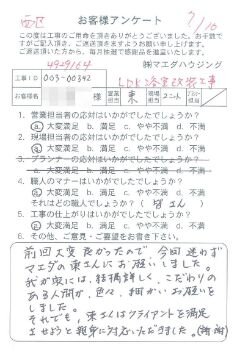 西区
お客様アンケート
7/10
この度は工事のご用命を頂きありがとうございました。お手数で
すがご記入頂き、ご返送頂きます様お願い申し上げます。
ご返送頂いた方から、毎月抽選で感謝品を進呈致します。
㈱マエダハウジング
工事ID 005-00342
LDK・浴室改装工事
お客様名 様 営業担当 東 現場担当
1. 営業担当者の応対はいかがでしたでしょうか?
ⓐ大変満足 b. 満足 c. やや不満 d. 不満
2. 現場担当者の応対はいかがでしたでしょうか?
ⓐ大変満足 b. 満足 c. やや不満 d. 不満
3. プランナーの応対はいかがでしたでしょうか?
a. 大変満足 b. 満足 c. やや不満 d. 不満
4. 職人のマナーはいかがでしたでしょうか?
ⓐ大変満足 b. 満足 c. やや不満 d. 不満
それはどの職人でしょうか? (皆さん)
5. 工事の仕上がりはいかがでしたでしょうか?
ⓐ大変満足 b. 満足 c. やや不満 d. 不満
6. その他、ご意見・ご要望をお書き下さい。
前回大変良かったので、今回迷わず
マエダの東さんにお願いしました。
我が家には、結構詳しく、こだわりの
ある人間が、色々、細かいお願いを
しました。
それでも、東さんはクライアントを満足
させようと親身に対応いただきました。(謝謝)